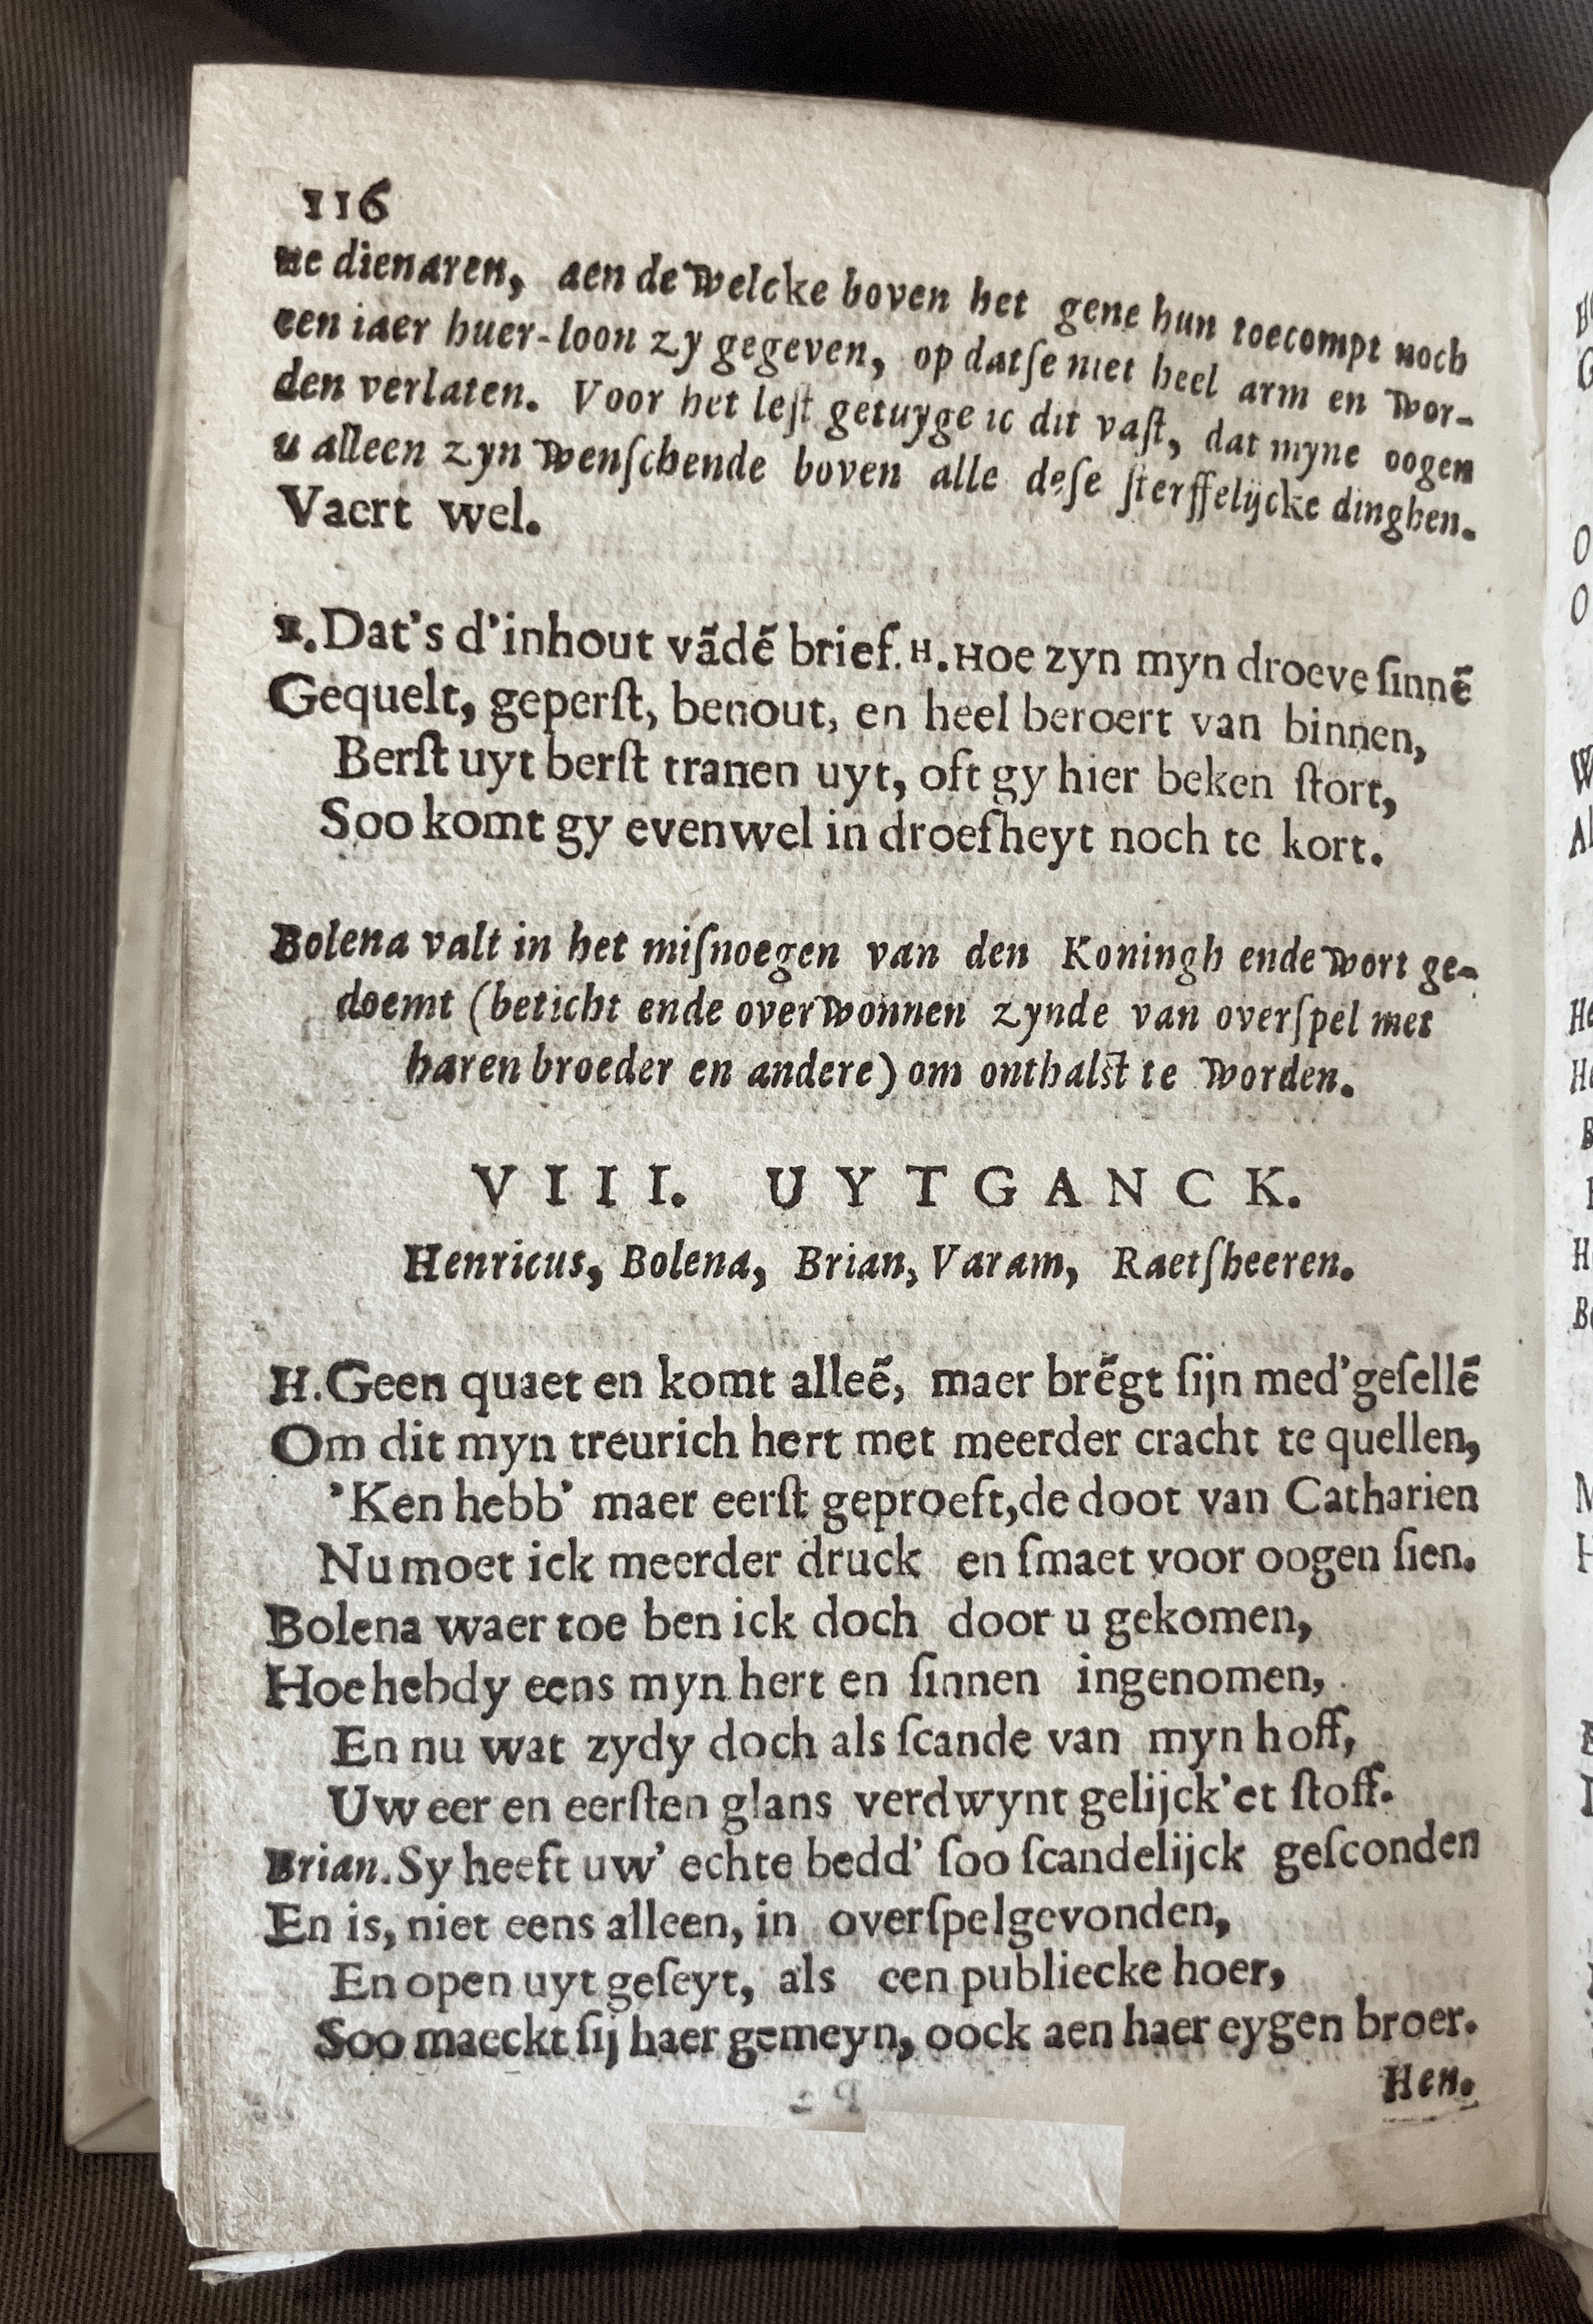 116
ne dienaren, aen de welcke boven het gene hun toecompt noch
een iaer huer-loon zy gegeven, op datſe niet heel arm en wor-
den verlaten. Voor het leſt getuyge ic dit vaſt, dat myne oogen
u alleen zyn wenſchende boven alle deſe ſterffelijcke dinghen.
Vaert wel.
Dat's d'inhout vādē brief. H. Hoe zyn myn droeve ſinnē
Gequelt, geperſt, benout, en heel beroert van binnen,
Berſt uyt berſt tranen uyt, oft gy hier beken ſtort,
Soo komt gy evenwel in droefheyt noch te kort.
Bolena valt in het miſnoegen van den Koningh ende wort ge-
doemt (beticht ende overwonnen zynde van overſpel met
haren broeder en andere) om onthalſt te worden.
VIII. UYTGANCK.
Henricus, Bolena, Brian, Varam, Raetſheeren.
H. Geen quaet en komt alleē, maer brēgt ſijn med'geſellē
Om dit myn treurich hert met meerder cracht te quellen,
'Ken hebb' maer eerſt geproeft, de doot van Catharien
Nu moet ick meerder druck en ſmaet voor oogen ſien.
Bolena waer toe ben ick doch door u gekomen,
Hoe hebdy eens myn hert en ſinnen ingenomen,
En nu wat zydy doch als ſcande van myn hoff,
Uw eer en eerſten glans verdwynt gelijck'et ſtoff.
Brian. Sy heeft uw' echte bedd' ſoo ſcandelijck geſconden
En is, niet eens alleen, in overſpel gevonden,
En open uyt geſeyt, als een publiecke hoer,
Soo maeckt ſij haer gemeyn, oock aen haer eygen broer.
Hen.